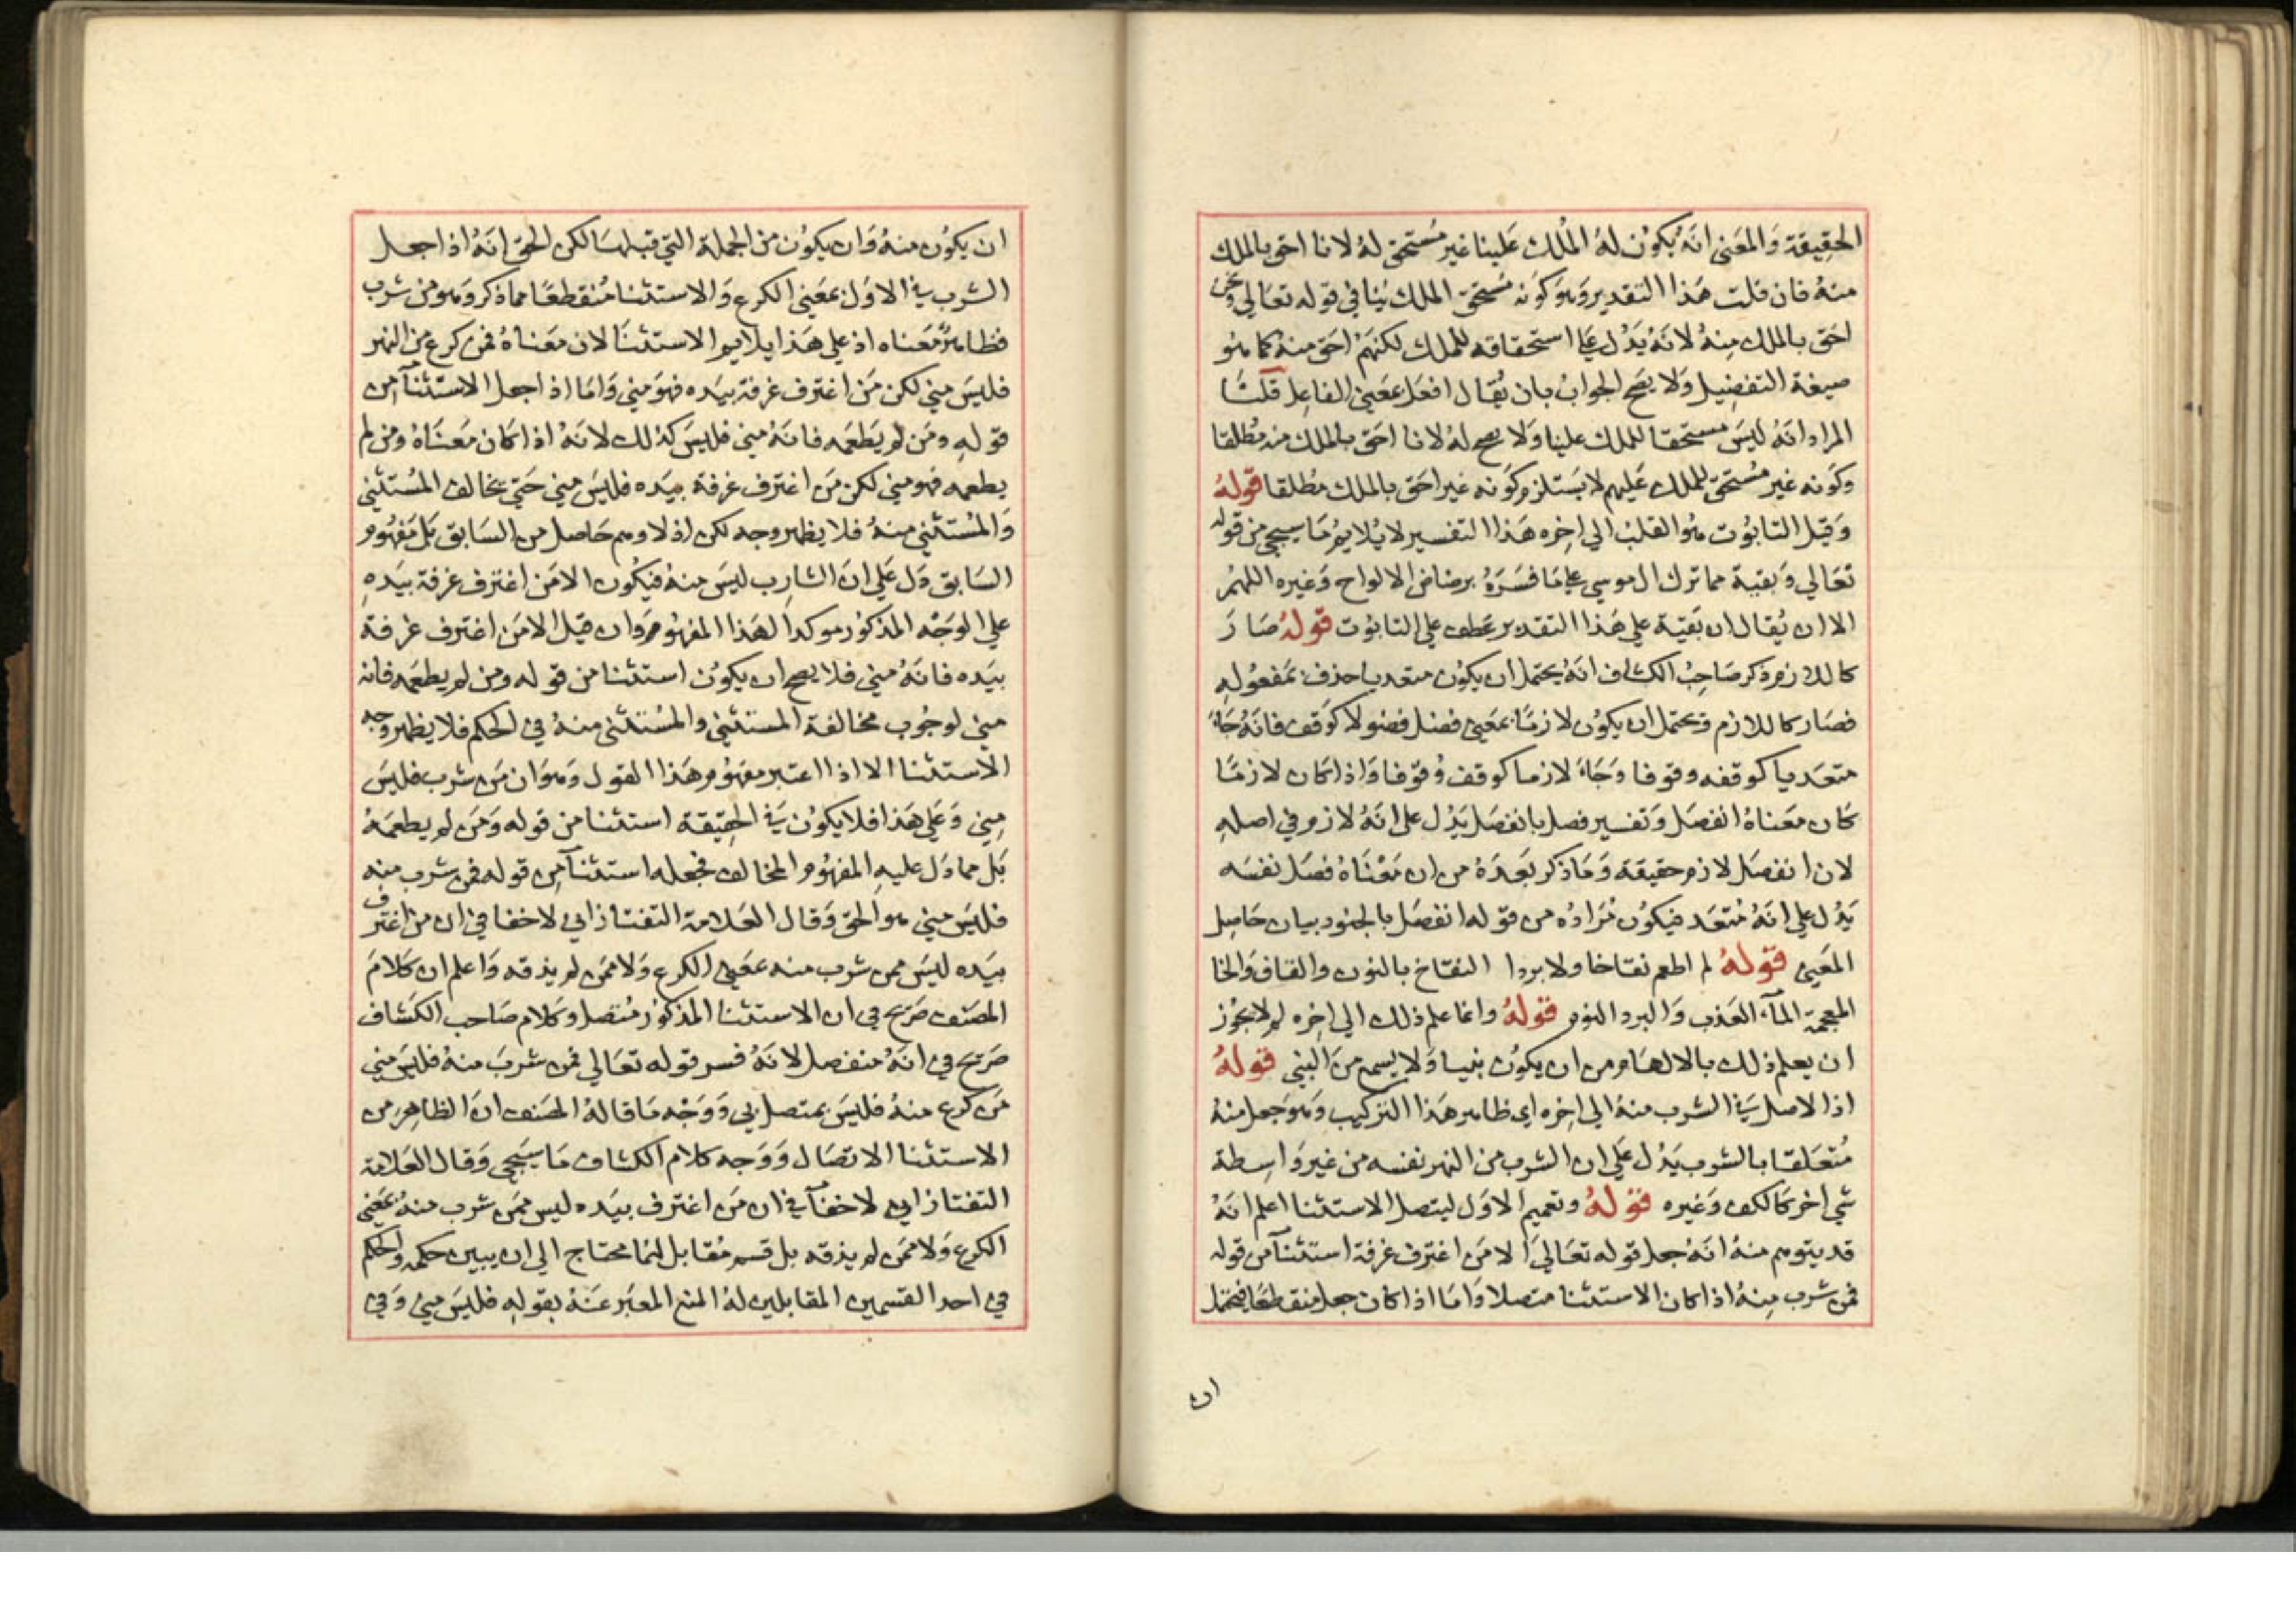 الحقيقة والمعنى انه يكون له الملك علينا غير مستحق له لانا احق بالملك
منه فان قلت هذا التقدير وهو كونه مستحق الملك ينافي قوله تعالى ونحن
احق بالملك منه لانه يدل على استحقاقه للملك لكنهم احق منه كما هو
صيغة التفضيل ولا يصح الجواب بان يقال افعل بمعنى الفاعل قلنا
المراد انه ليس مستحقا للملك علينا ولا يصح له لانا احق بالملك منه مطلقا
وكونه غير مستحق للملك عليهم لا يستلزم كونه غير احق بالملك مطلقا قوله
وقيل التابوت هو القلب الى اخره هذا التفسير لا يلايم ما سيجي من قوله
تعالى وبقية مما ترك ال موسى على ما فسره برضاض الالواح وغيره اللهم
الا ان يقال ان بقية على هذا التقدير عطف على التابوت قوله صار
كاللازم ذكر صاحب الكشاف انه يحتمل ان يكون متعديا حذف مفعوله
فصار كاللازم ويحتمل ان يكون لازما بمعنى فصل فصولا كوقف فانه جاء
متعديا كوقفه وقوفا وجاء لازما كوقف وقوفا واذا كان لازما
كان معناه انفصل وتفسير فصل بانفصل يدل على انه لازم في اصله
لان انفصل لازم حقيقة وما ذكر بعده من ان معناه فصل نفسه
يدل على انه متعد فيكون مراده من قوله انفصل بالجنود بيان حاصل
المعنى قوله لم اطعم نقاخا ولا بردا النقاخ بالنون والقاف والخا
المعجمة المآء العذب والبرد النوم قوله وانما علم ذلك الى اخره لم لا يجوز
ان يعلم ذلك بالالهام من ان يكون نبيا ولا يسمع من النبي قوله
اذ الاصل في الشرب منه الى اخره اى ظاهر هذا التركيب وهو جعل منه
متعلقا بالشرب يدل على ان الشرب من النهر نفسه من غير واسطة
شي اخر كالكف وغيره قوله وتعميم الاول ليتصل الاستثنا اعلم انه
قد يتوهم منه انه جعل قوله تعالى الا من اغترف غرفة استثنآ من قوله
فمن شرب منه اذا كان الاستثنا متصلا واما اذا كان جعل منقطعا فيحتمل
ان
ان يكون منه وان يكون من الجملة التي قبلها لكن الحق انه اذا جعل
الشرب في الاول بمعنى الكرع والاستثنا منقطعا مما ذكر وهو من شرب
فظاهر معناه اذ على هذا يلايم الاستثنا لان معناه فمن كرع من النهر
فليس مني لكن من اغترف غرفة بيده فهو مني واما اذا جعل الاستثنآ من
قوله ومن لم يطعمه فانه مني فليس كذلك لانه اذا كان معناه ومن لم
يطعمه فهو مني لكن من اغترف غرفة بيده فليس مني حتى يخالف المستثنى
والمستثنى منه فلا يظهر وجه لكن اذ لا وهم حاصل من السابق بل مفهوم
السابق دل على ان الشارب ليس منه فيكون الا من اغترف غرفة بيده
على الوجه المذكور موكدا لهذا المفهوم وان قيل الا من اغترف غرفة
بيده فانه مني فلا يصح ان يكون استثنا من قوله ومن لم يطعمه فانه
مني لوجوب مخالفة المستثنى والمستثنى منه في الحكم فلا يظهر وجه
الاستثنا الا اذا اعتبر مفهوم هذا القول وهو ان من شرب فليس
مني وعلى هذا فلا يكون في الحقيقة استثنا من قوله ومن لم يطعمه
بل مما دل عليه المفهوم المخالف فجعله استثنآ من قوله فمن شرب منه
فليس مني هو الحق وقال العلامة التفتازاني لا خفا في ان من اغترف
بيده ليس ممن شرب منه بمعنى الكرع ولا ممن لم يذقه واعلم ان كلام
المصنف صريح في ان الاستثنا المذكور متصل وكلام صاحب الكشاف
صريح في انه منفصل لانه فسر قوله تعالى فمن شرب منه فليس مني
من كرع منه فليس بمتصل بي ووجه ما قاله المصنف ان الظاهر من
الاستثنا الاتصال ووجه كلام الكشاف ما سيجي وقال العلامة
التفتازاني لا خفآ في ان من اغترف بيده ليس ممن شرب منه بمعنى
الكرع ولا ممن لم يذقه بل قسم مقابل لهما محتاج الى ان يبين حكمه والحكم
في احد القسمين المقابلين له المنع المعبر عنه بقوله فليس مني وفي